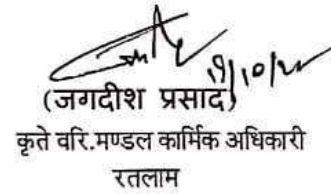 (जगदीश प्रसाद)
कृते वरि.मण्डल कार्मिक अधिकारी
रतलाम